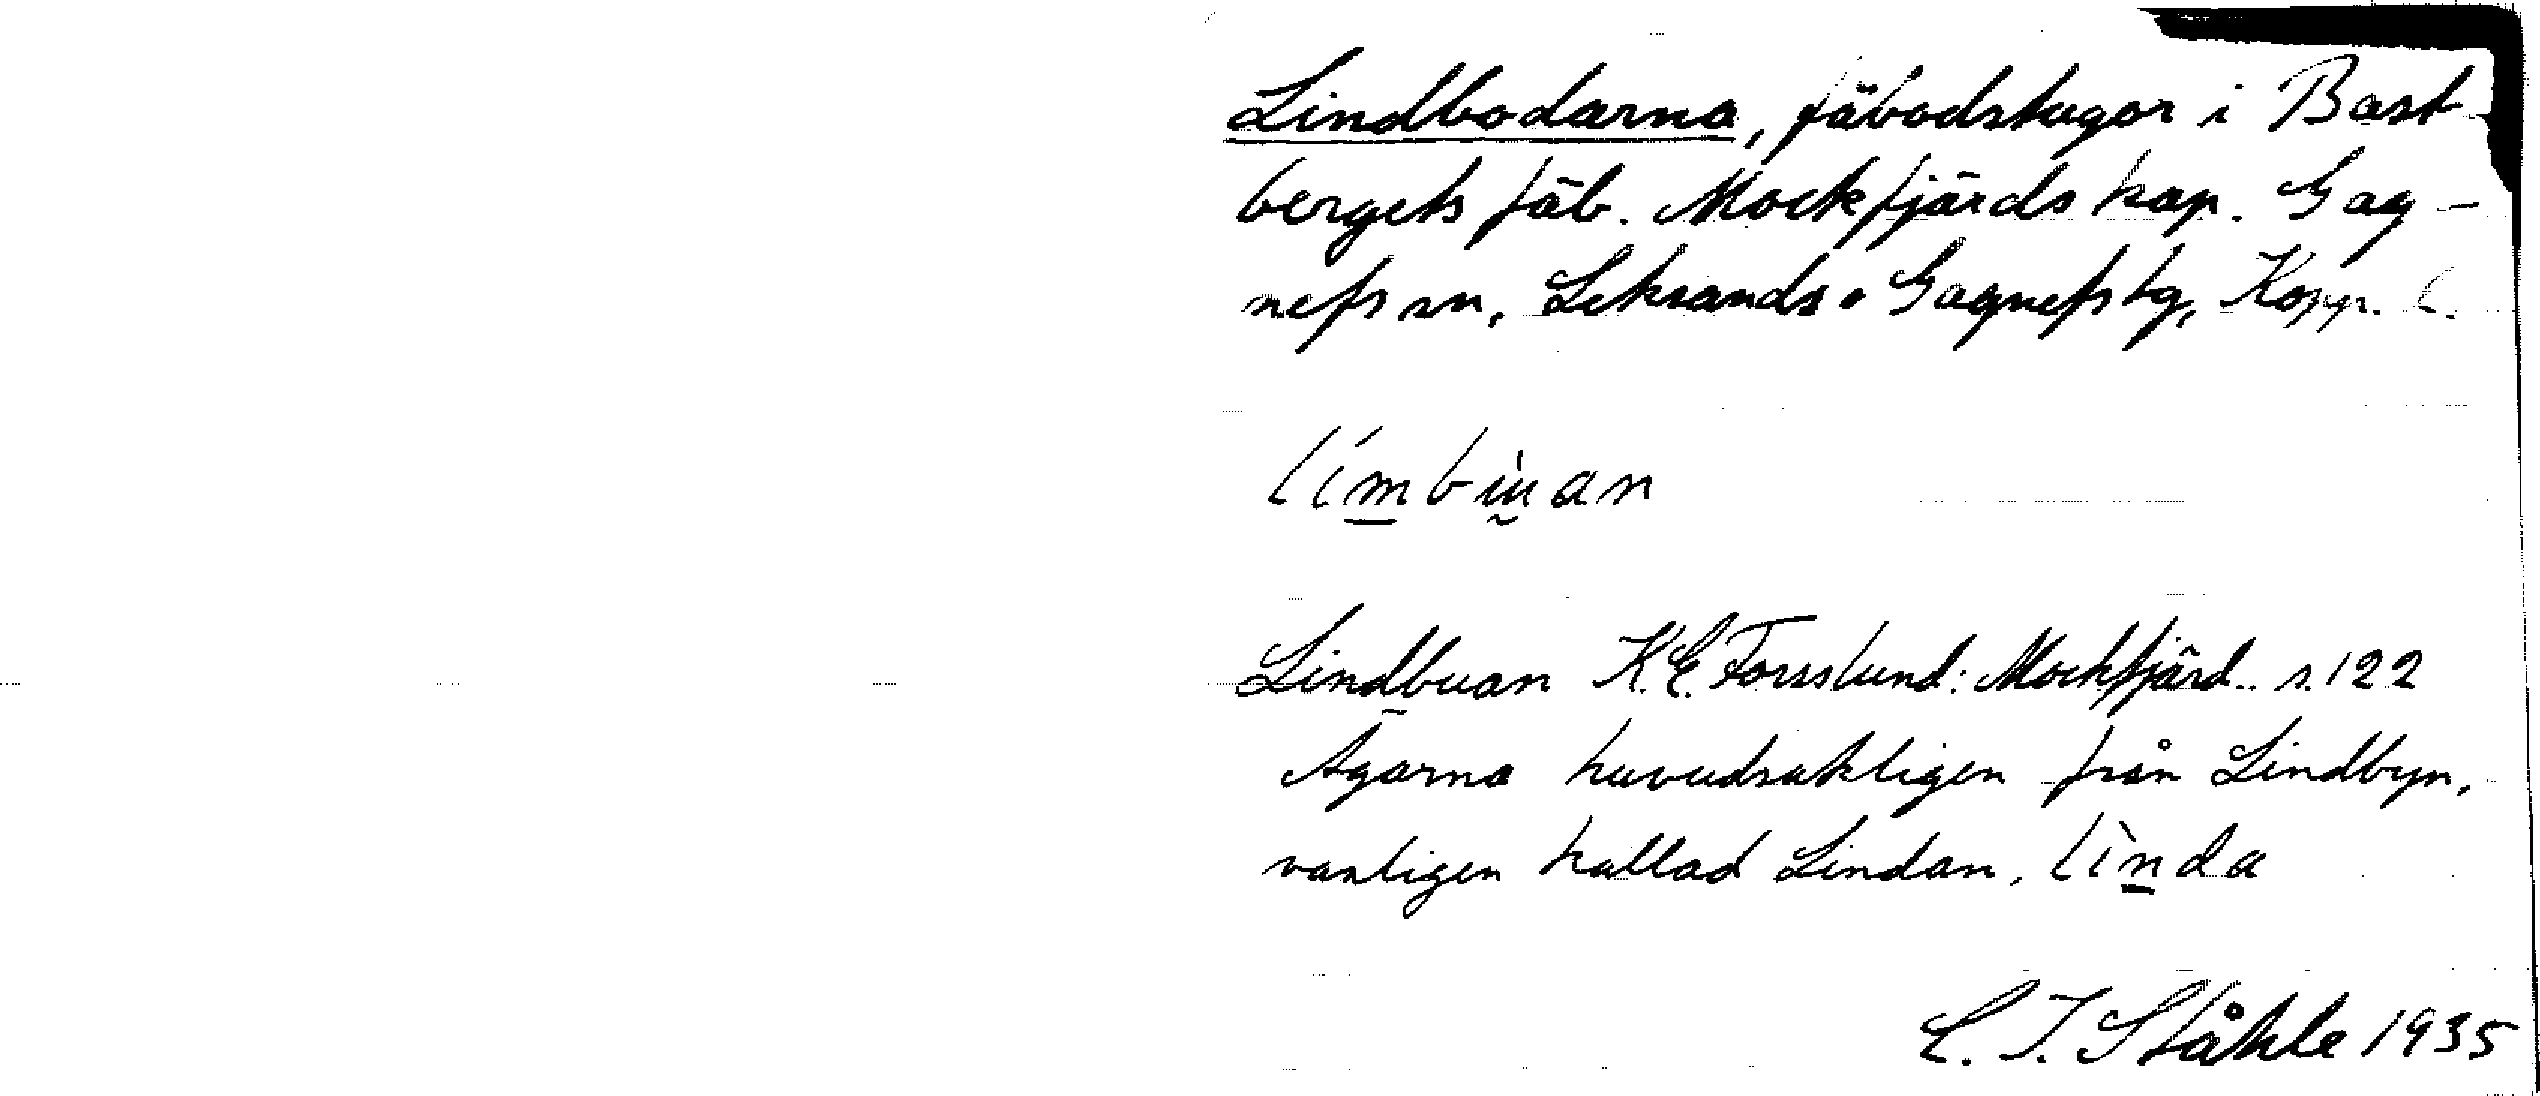 Lindbodarna, fäbodstugor i Bast-
bergets fäb. Mockfjärds kap. Gag-
nefs sn, Leksands o Gagnefs tg, Kopp. l.
límbùan
Lindbuan K.E. Forsslund: Mockfjärd.. s. 122
Ägarna huvudsakligen från Lindbyn,
vanligen kallad Lindan, lìnda
E. I. Ståhle 1935